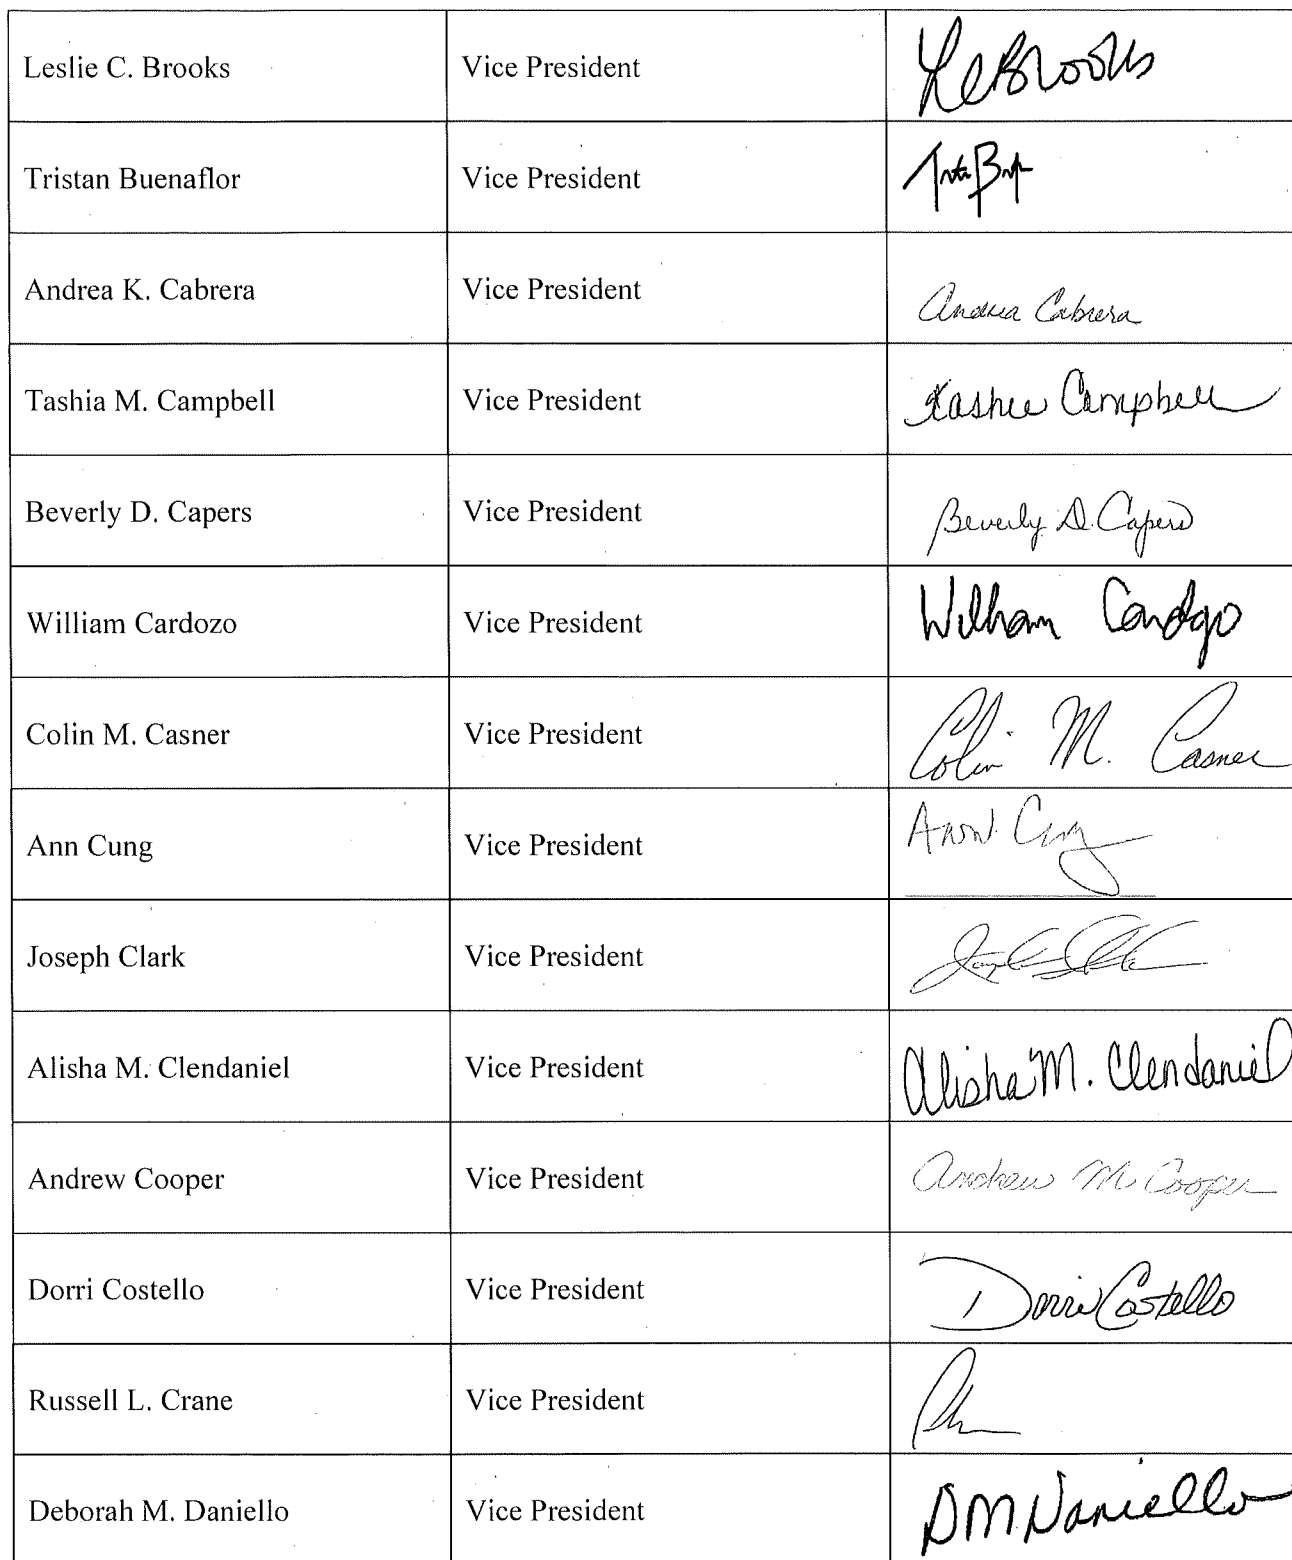 Leslie C. Brooks Vice President LCBrooks
Tristan Buenaflor Vice President
Andrea K. Cabrera Vice President Andrea Cabrera
Tashia M. Campbell Vice President Tashia Campbell
Beverly D. Capers Vice President Beverly D. Capers
William Cardozo Vice President William Cardozo
Colin M. Casner Vice President Colin M. Casner
Ann Cung Vice President Ann Cung
Joseph Clark Vice President
Alisha M. Clendaniel Vice President Alisha M. Clendaniel
Andrew Cooper Vice President Andrew M Cooper
Dorri Costello Vice President Dorri Costello
Russell L. Crane Vice President
Deborah M. Daniello Vice President DMDaniello